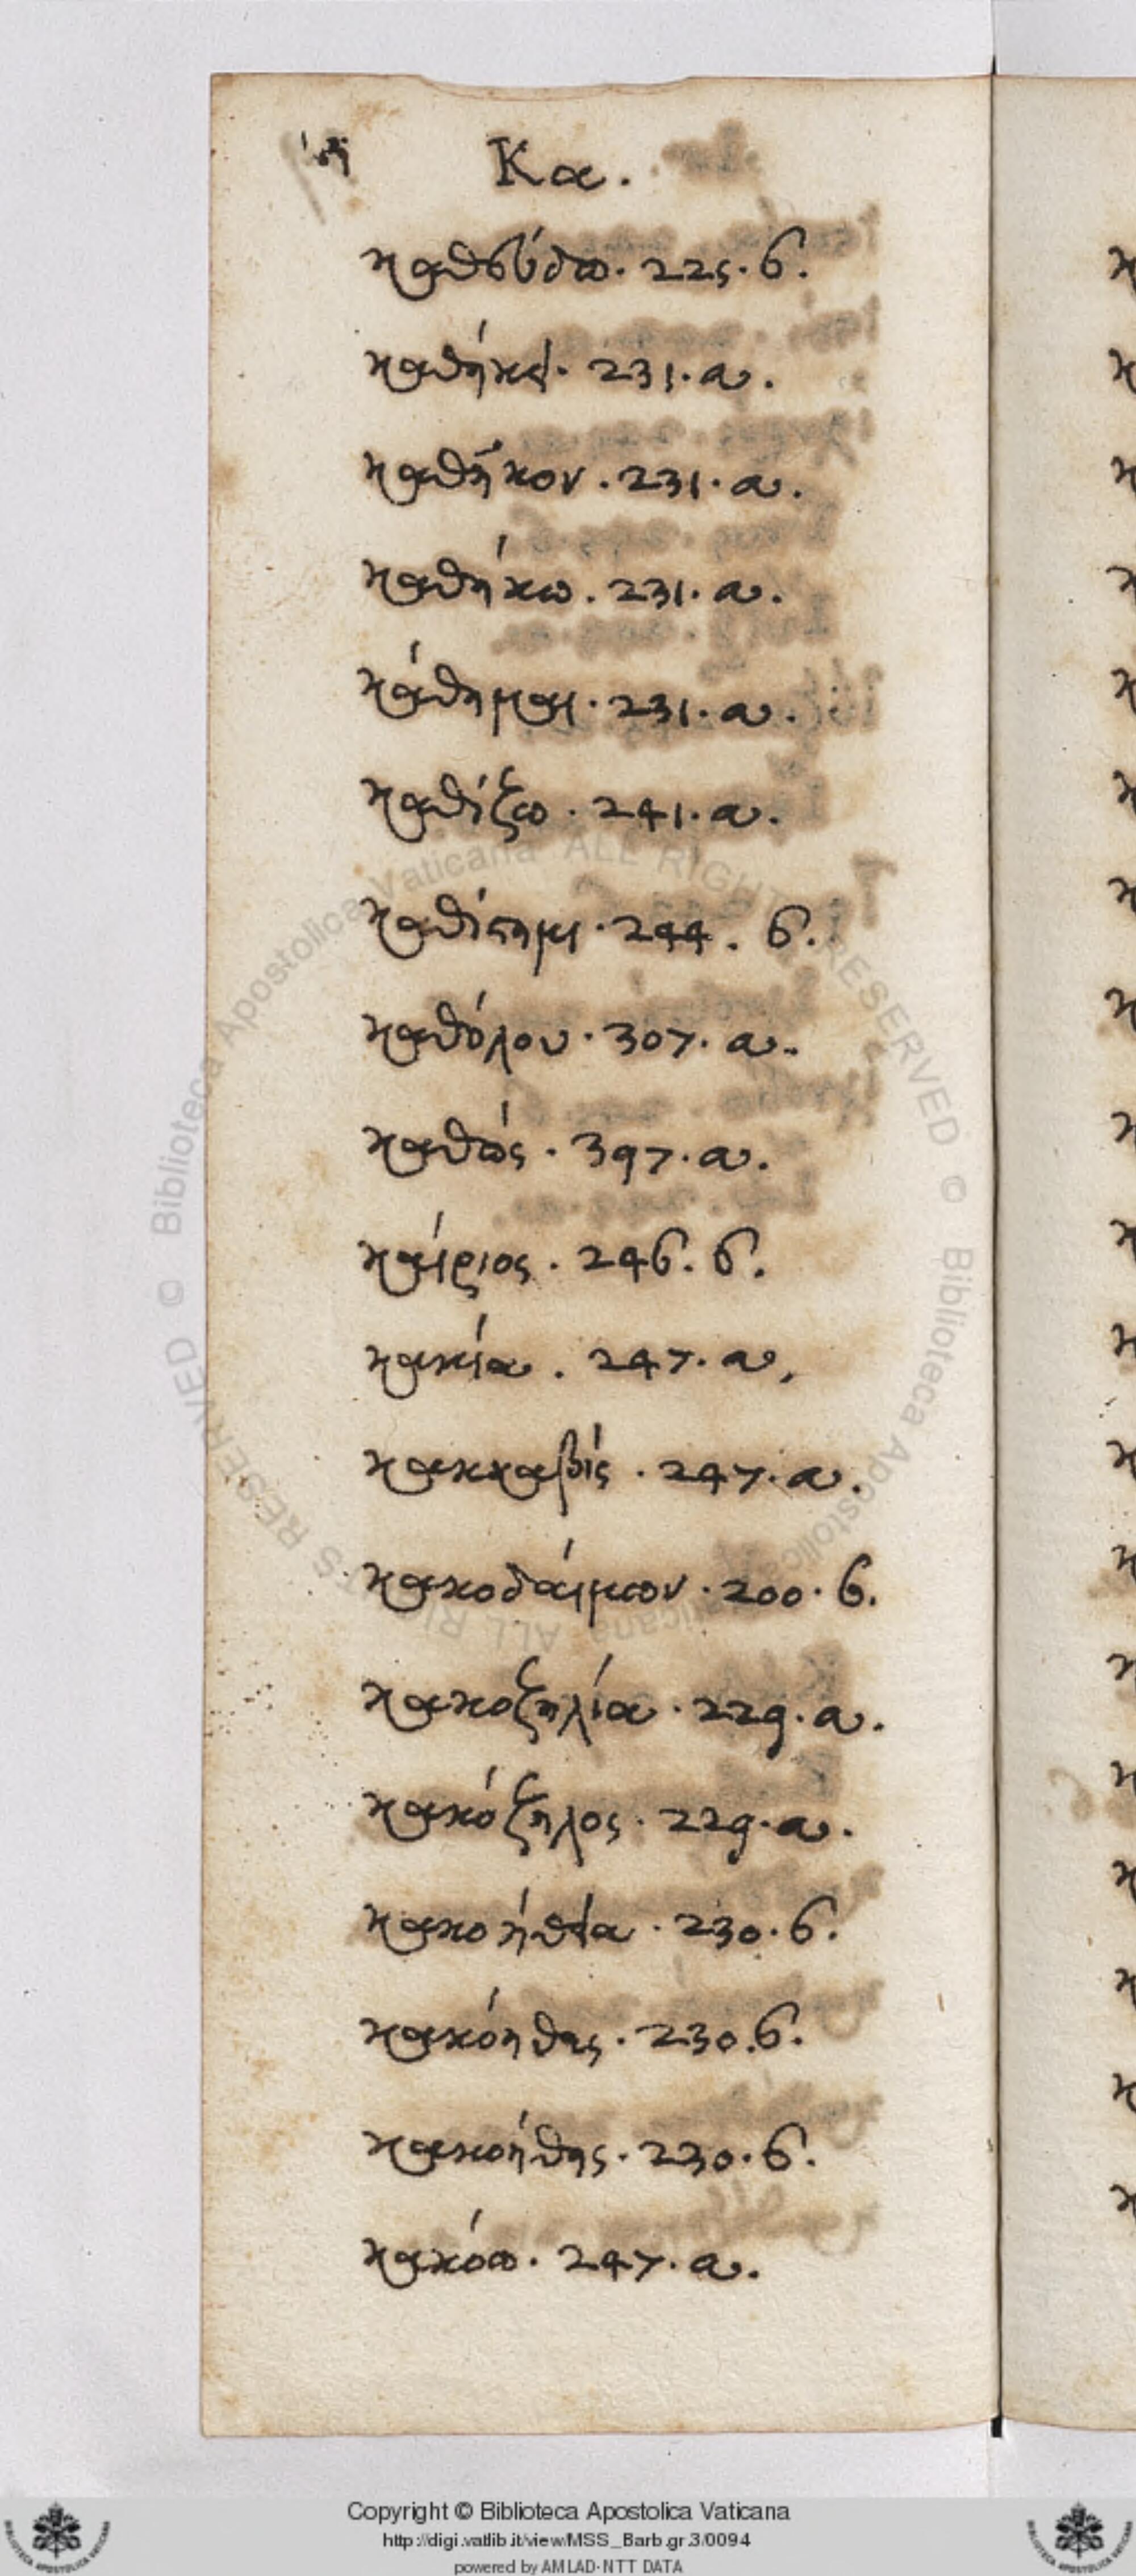 Κα.
καθεύδω. 225. б.
καθήκει. 231. α.
καθῆκον. 231. α.
καθήκω. 231. α.
κάθημαι. 231. α.
καθίζω. 241. α.
καθίστημι. 244. б.
καθόλου. 307. α.
καθώς. 397. α.
καίριος. 246. б.
κακία. 247. α,
κακκαβίς. 247. α.
κακοδαίμων. 200. б.
κακοζηλία. 229. α.
κακόζηλος. 229. α.
κακοήθεια. 230. б.
κακόηθες. 230. б.
κακοήθης. 230. б.
κακόω. 247. α.
Copyright © Biblioteca Apostolica Vaticana
http://digi.vatlib.it/view/MSS_Barb.gr.3/0094
powered by AMLAD-NTT DATA